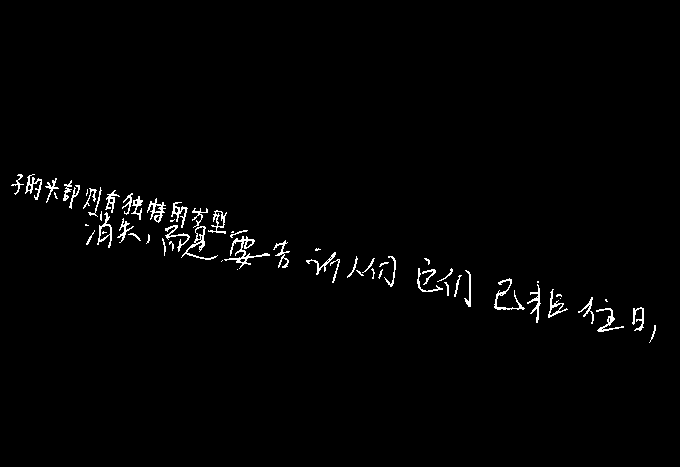 子的头部则有独特的发型
消失，而是要告诉人们它们已非往日，